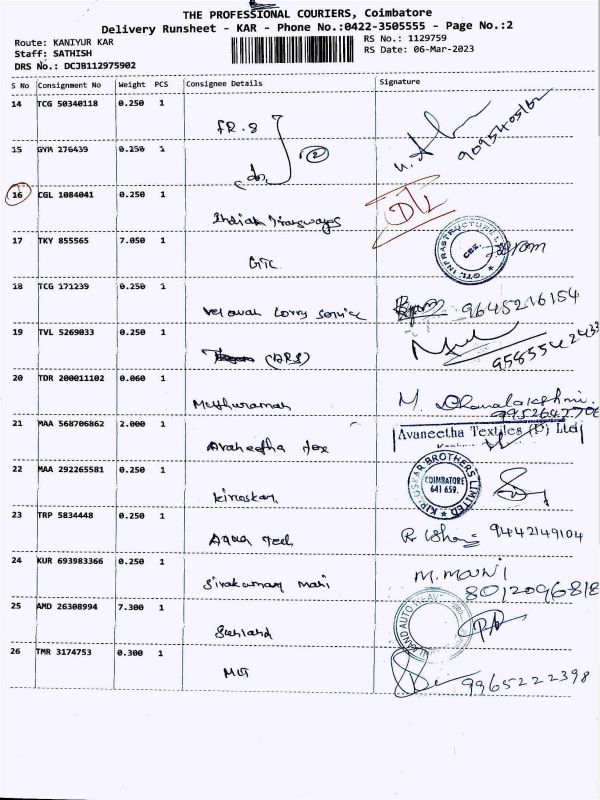 THE PROFESSIONAL COURIERS, Coimbatore
Delivery Runsheet - KAR - Phone No.:0422-3505555 - Page No.:2
Route: KANIYUR KAR
Staff: SATHISH
DRS No.: DCJB112975902
RS No.: 1129759
RS Date: 06-Mar-2023
S No Consignment No Weight PCS Consignee Details Signature
14 TCG 50340118 0.250 1
FR. 8
15 GYM 276439 0.250 1
do. 2
16 CGL 1084041 0.250 1
DTL
17 TKY 855565 7.050 1
GTL INFRASTRUCTURE
CBE.
18 TCG 171239 0.250 1
Velavan Lorry Service 9645216154
19 TVL 5269033 0.250 1
(DRS)
20 TDR 200011102 0.060 1
Muthuraman M. Dhanalakshmi.
21 MAA 568706862 2.000 1
Avaneetha Tex Avaneetha Textiles (P) Ltd
22 MAA 292265581 0.250 1
Kirloskar
KIRLOSKAR BROTHERS LIMITED
COIMBATORE
641 659.
23 TRP 5834448 0.250 1
Aqua Tech 9442149104
24 KUR 693983366 0.250 1
Sivakumar Mari M. Mani
8012096818
25 AMD 26308994 7.300 1
26 TMR 3174753 0.300 1
9965222398